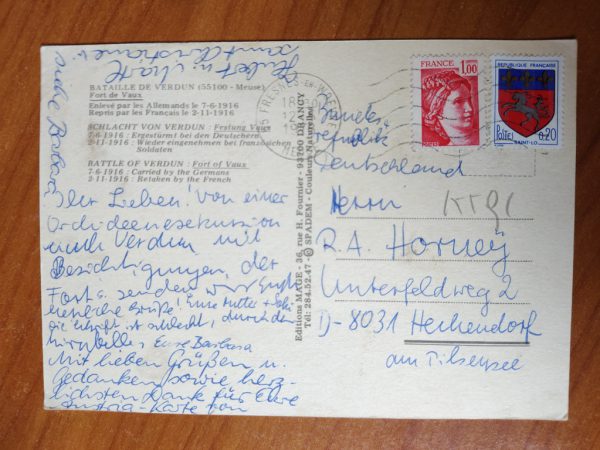 BATAILLE DE VERDUN (55100 - Meuse)
Fort de Vaux
Enlevé par les Allemands le 7-6-1916
Repris par les Français le 2-11-1916
SCHLACHT VON VERDUN : Festung Vaux
7-6-1916 : Ergestürmt den Deutschern
2-11-1916 : Wieder eingenehmen bei französischen
Soldaten
BATTLE OF VERDUN : Fort of Vaux
7-6-1916 : Carried by the Germans
2-11-1916 : Retaken by the French
Ihr Lieben! Von einer
Orchideenexkursion
nach Verdun mit
Besichtigungen der
Forts senden wir
Grüße! Eure Mutter
die Schrift ist schlecht, durch den
Eure Barbara
Mit lieben Grüßen u.
Gedanken sowie herz-
lichsten Dank für Eure
Karte von
Editions MAGE - 36, rue H. Fournier - 93700 DRANCY
Tél: 284.52.47 - © SPADEM - Couleurs Naturelles
FRESNES-EN-WOEVRE
FRANCE
1,00
REPUBLIQUE FRANÇAISE
Postes 0,20
SAINT-LO
Bundes
republik
Deutschland
Herrn
R.A. Horney
Unterfeldweg 2
D-8031 Hechendorf
am Pilsensee